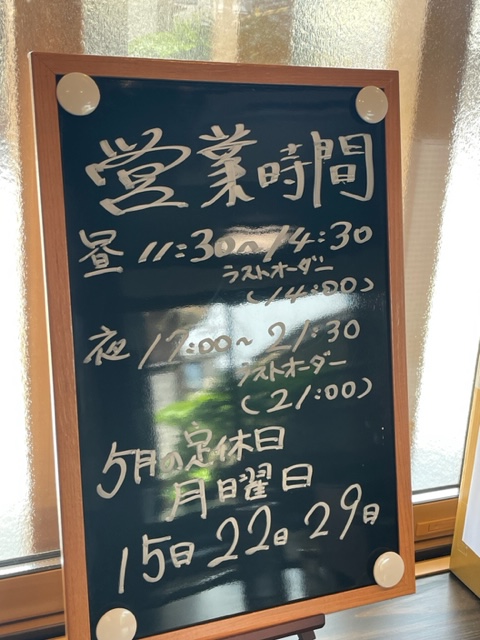 営業時間
昼 11:30~14:30
ラストオーダー
(14:00)
夜 17:00~21:30
ラストオーダー
(21:00)
5月の定休日
月曜日
15日 22日 29日